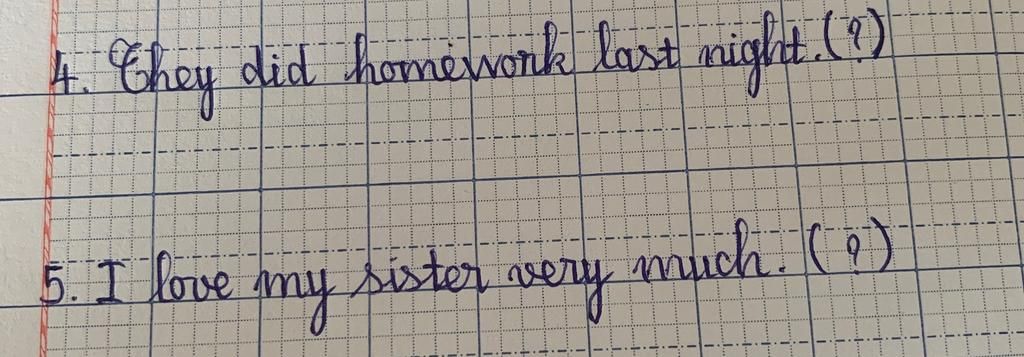 4. They did homework last night. (?)
5. I love my sister very much. (?)